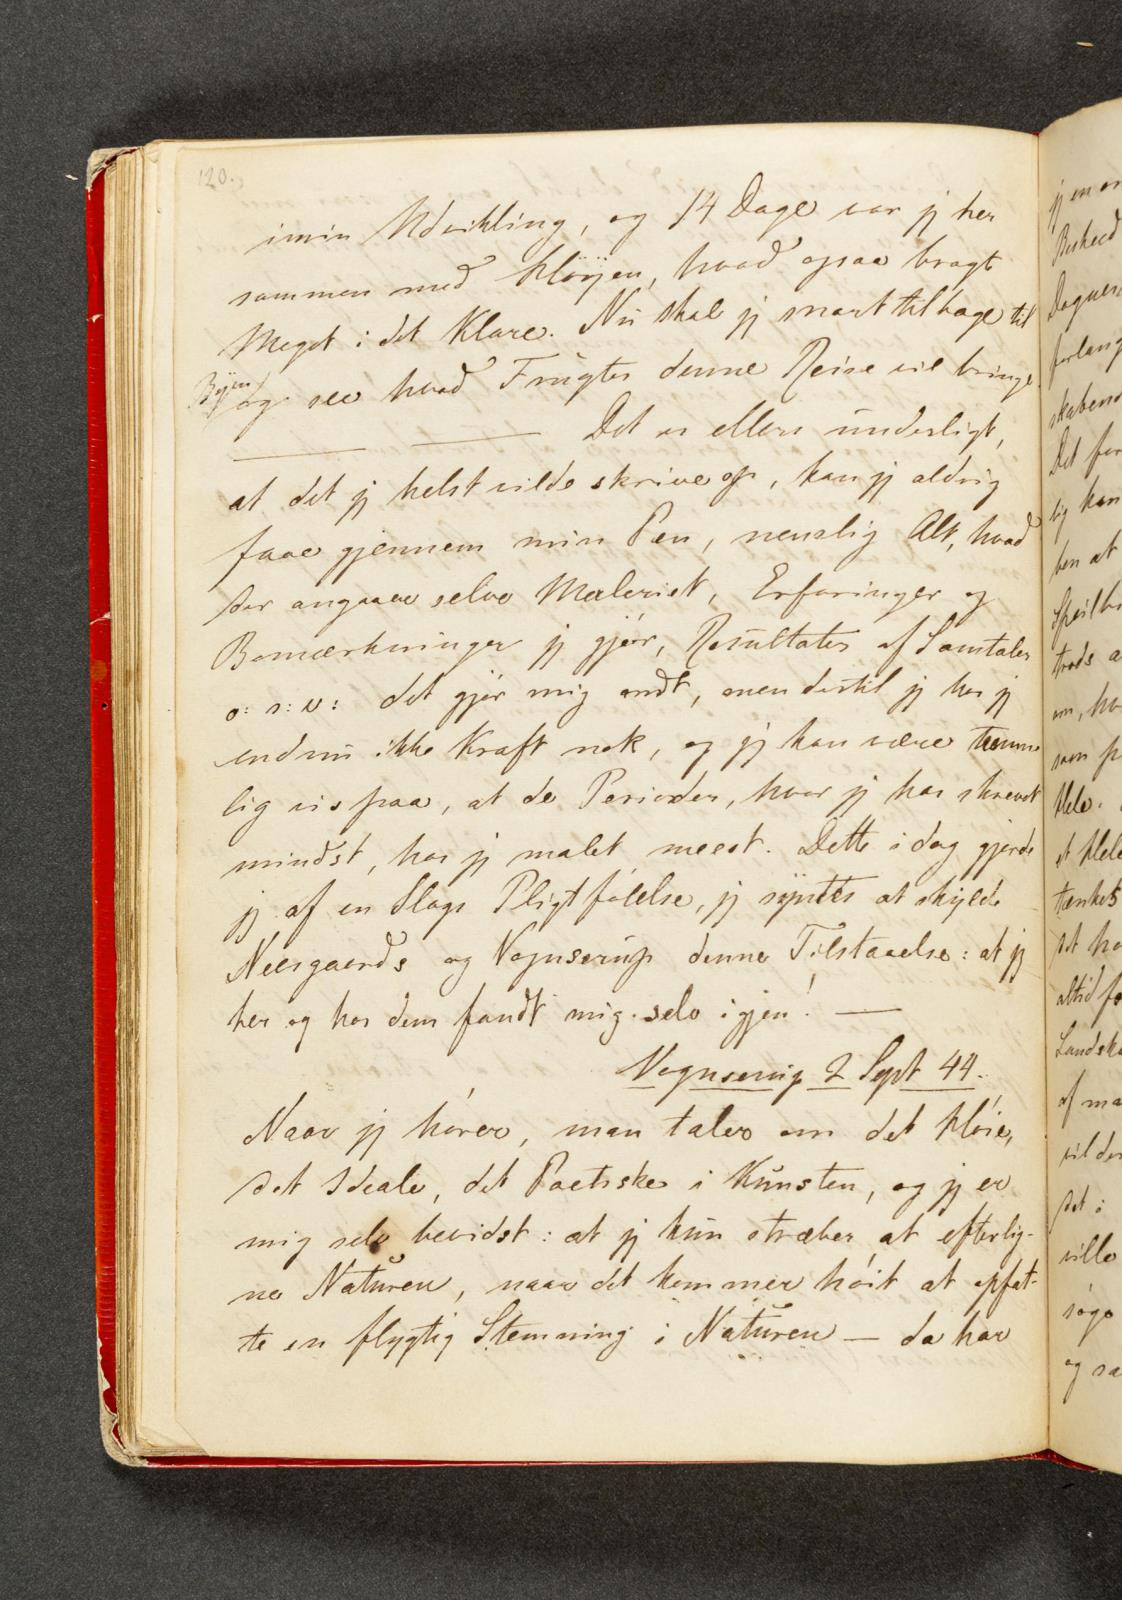 120.
i min Udvikling, og 14 Dage var jeg her
sammen med Höÿen, hvad ogsaa bragt
Meget i det Klare. Nu skal jeg snart tilbage til
Byen/ og see hvad Frugter denne Reise vil bringe.
Det er ellers underligt,
at det jeg helst vilde skrive op, kan jeg aldrig
faae gjennem min Pen, nemlig Alt, hvad
der angaaer selve Maleriet, Erfaringer og
Bemærkninger jeg gjør, Resultater af Samtaler
o: s: v: det gjør mig ondt, men dertil jeg har jeg
endnu ikke Kraft nok, og jeg kan være temme
lig vis paa, at de Perioder, hvor jeg har skrevet
mindst, har jeg malet meest. Dette i dag gjorde
jeg af en Slags Pligtfølelse, jeg syntes at skylde
Neergaards og Vognserup denne Tilstaaelse: at jeg
her og hos dem fandt mig selv igjen! —
Vognserup 2 Sept 44.
Naar jeg hører, man taler om det Høie,
det Ideale, det Poetiske i Kunsten, og jeg er
mig selv bevidst: at jeg kun stræber at efterlig-
ne Naturen, naar det kommer høit at opfat-
te en flygtig Stemning i Naturen — da har
jeg en
Beskeed
forlang
Det for
lig kan
ben at
trods a
om, hv
som p
Hele.
et Hele
tænkes
det ha
altid fo
Landska
af ma
vil der
det i
ville
søge
og sa